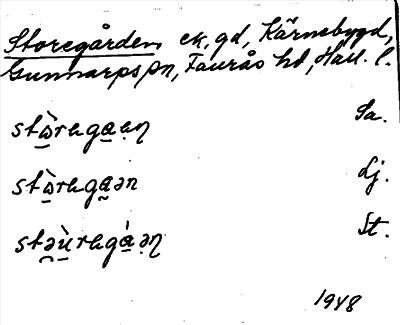 Storegården ek, gd, Kärnebygd,
Gunnarps sn, Faurås hd, Hall. l.
stὼ̱rega̱ən Sa.
stὼ̱rega̱ən Lj.
stə̯ù̱regá̱ən St.
1948